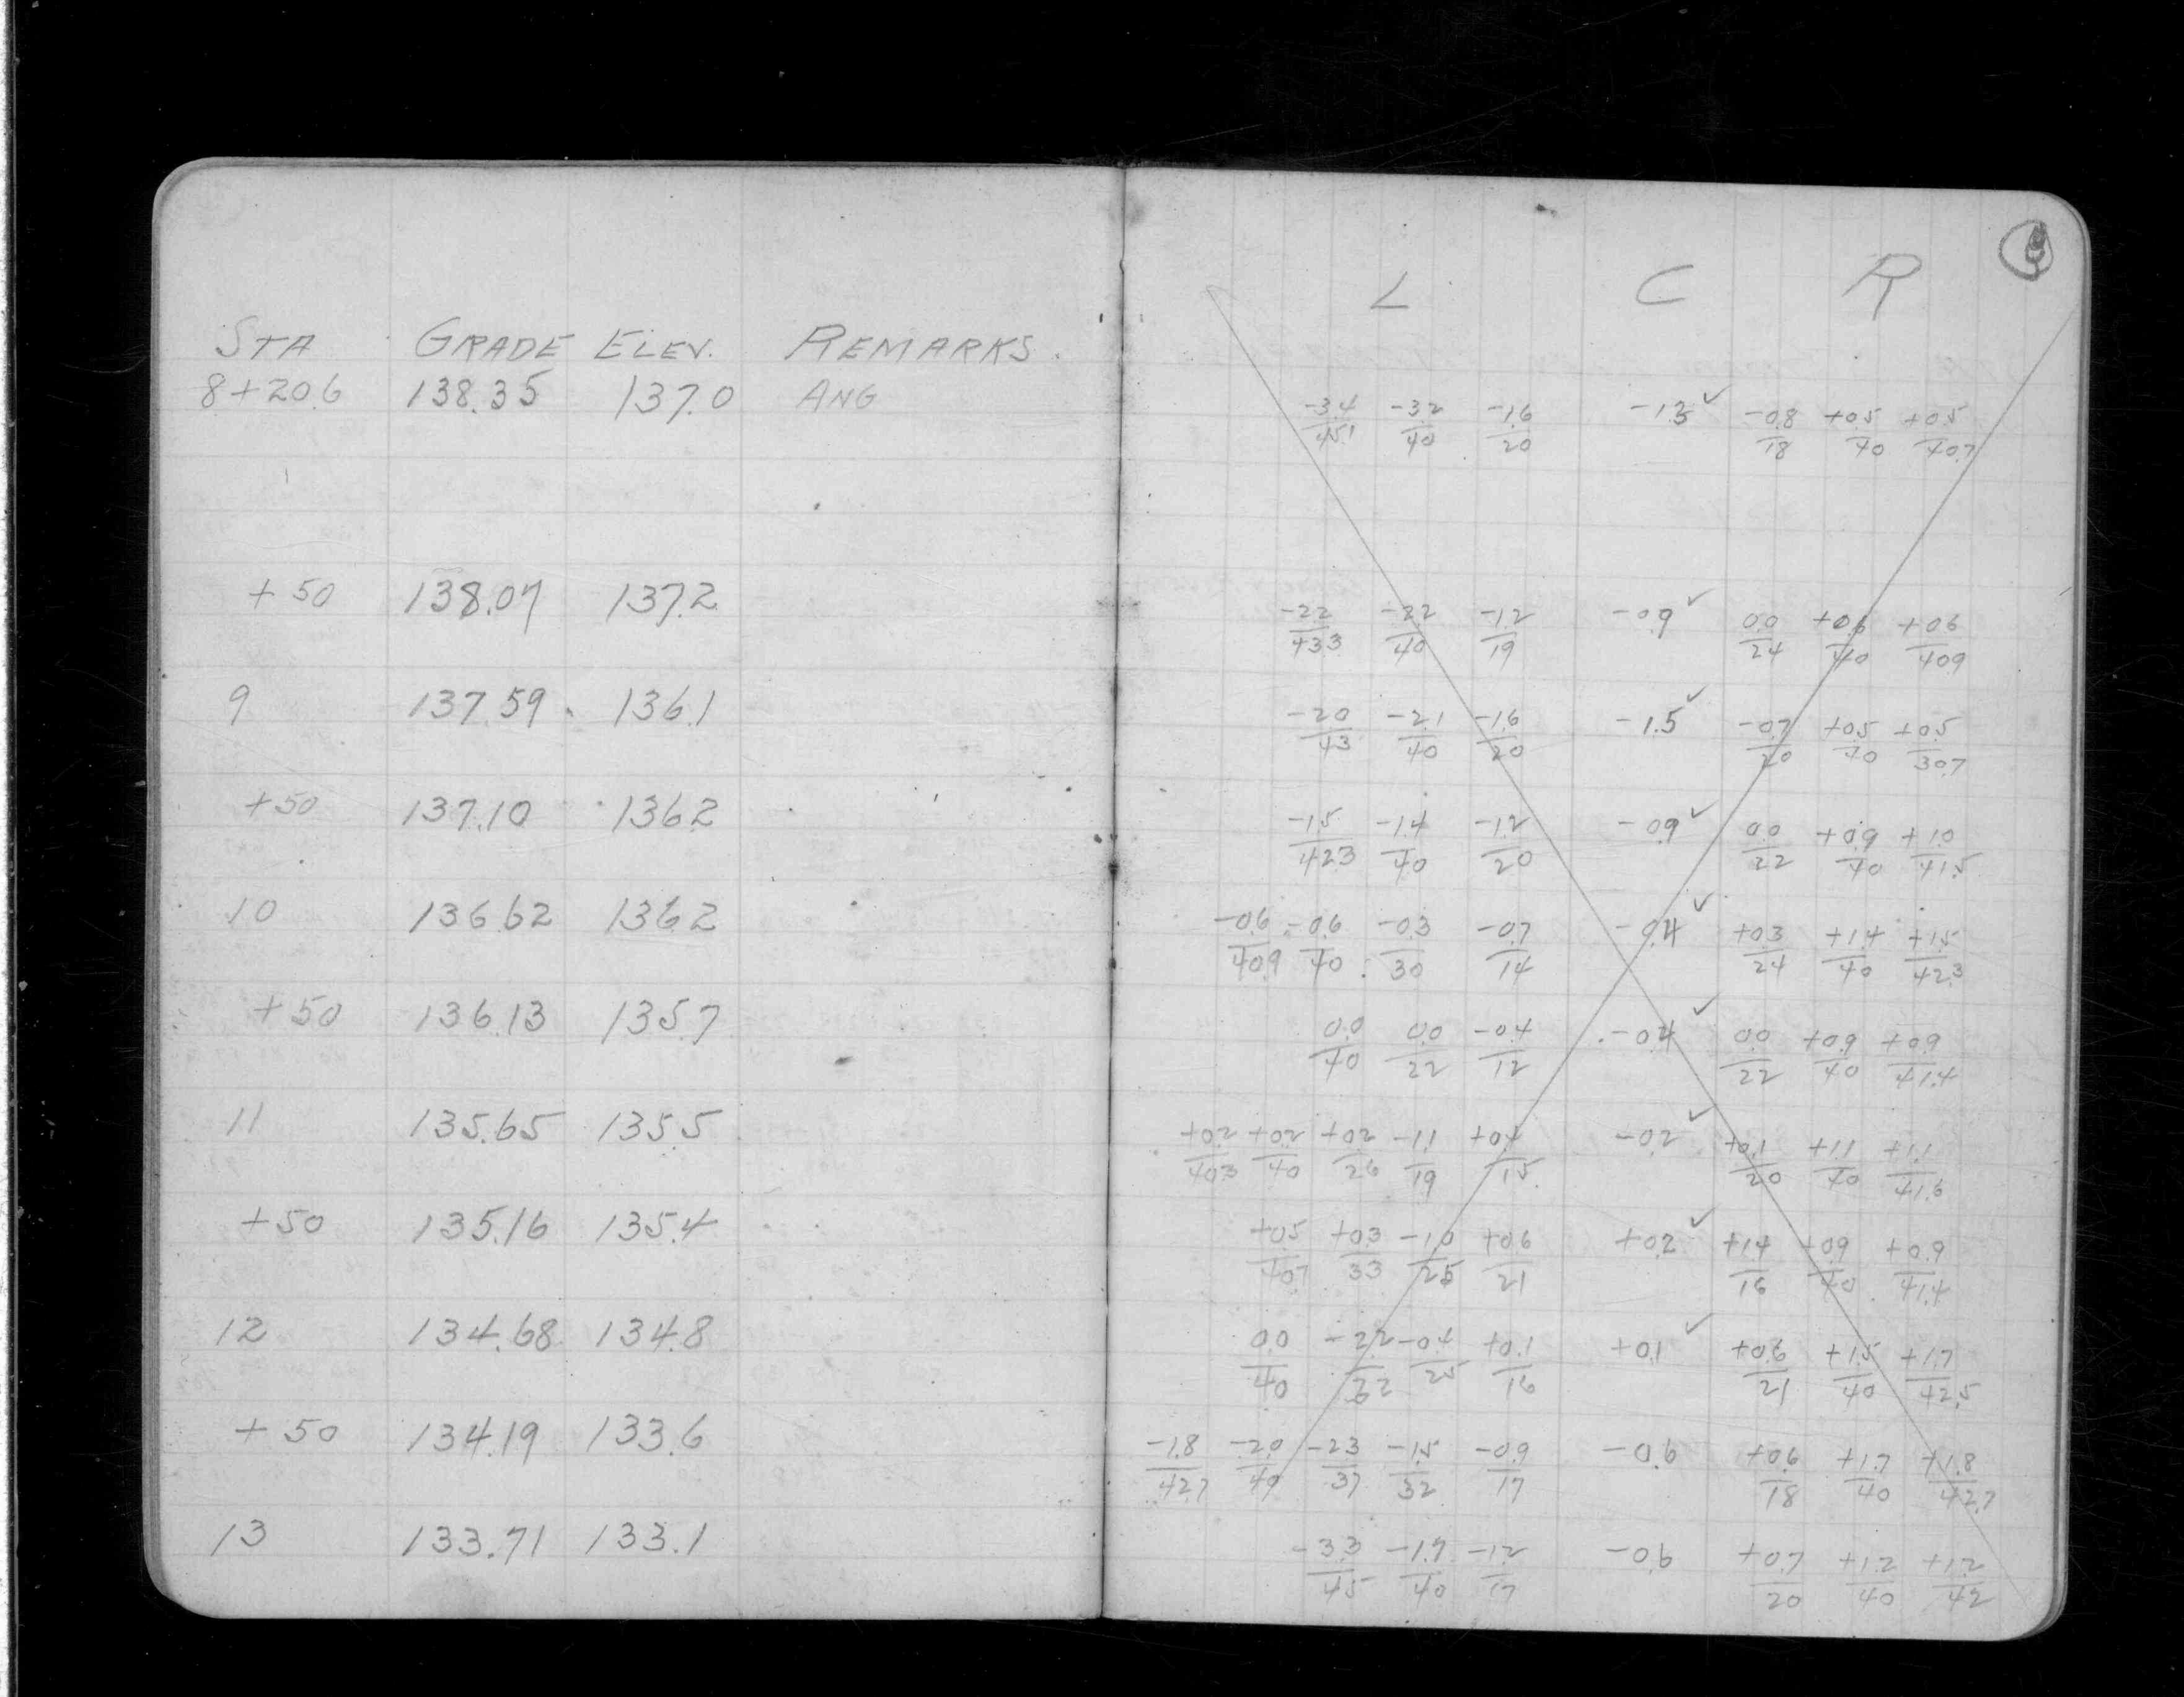 STA GRADE ELEV. REMARKS.
8+20.6 138.35 137.0 ANG
+50 138.07 137.2
9 137.59 136.1
+50 137.10 136.2
10 136.62 136.2
+50 136.13 135.7
11 135.65 135.5
+50 135.16 135.4
12 134.68 134.8
+50 134.19 133.6
13 133.71 133.1
L C R
-3.4 -3.2 -1.6 -1.3 ✓ -0.8 +0.5 +0.5
45.1 40 20 18 40 40.7
-2.2 -2.2 -1.2 -0.9 ✓ 0.0 +0.6 +0.6
43.3 40 19 24 40 40.9
-2.0 -2.1 -1.6 -1.5 ✓ -0.7 +0.5 +0.5
43 40 20 20 40 30.7
-1.5 -1.4 -1.2 -0.9 ✓ 0.0 +0.9 +1.0
42.3 40 20 22 40 41.5
-0.6 -0.6 -0.3 -0.7 -0.4 ✓ +0.3 +1.4 +1.5
40.9 40 30 14 24 40 42.3
0.0 0.0 -0.4 -0.4 ✓ 0.0 +0.9 +0.9
40 22 12 22 40 41.4
+0.2 +0.2 +0.2 -1.1 +0.4 -0.2 ✓ +0.1 +1.1 +1.1
40.3 40 26 19 15 20 40 41.6
+0.5 +0.3 -1.0 +0.6 +0.2 ✓ +1.4 +0.9 +0.9
40.7 33 25 21 16 40 41.4
0.0 -2.2 -0.4 +0.1 +0.1 ✓ +0.6 +1.5 +1.7
40 32 25 16 21 40 42.5
-1.8 -2.0 -2.3 -1.5 -0.9 -0.6 +0.6 +1.7 +1.8
42.7 40 37 32 17 18 40 42.7
-3.3 -1.9 -1.2 -0.6 +0.7 +1.2 +1.2
45 40 17 20 40 42